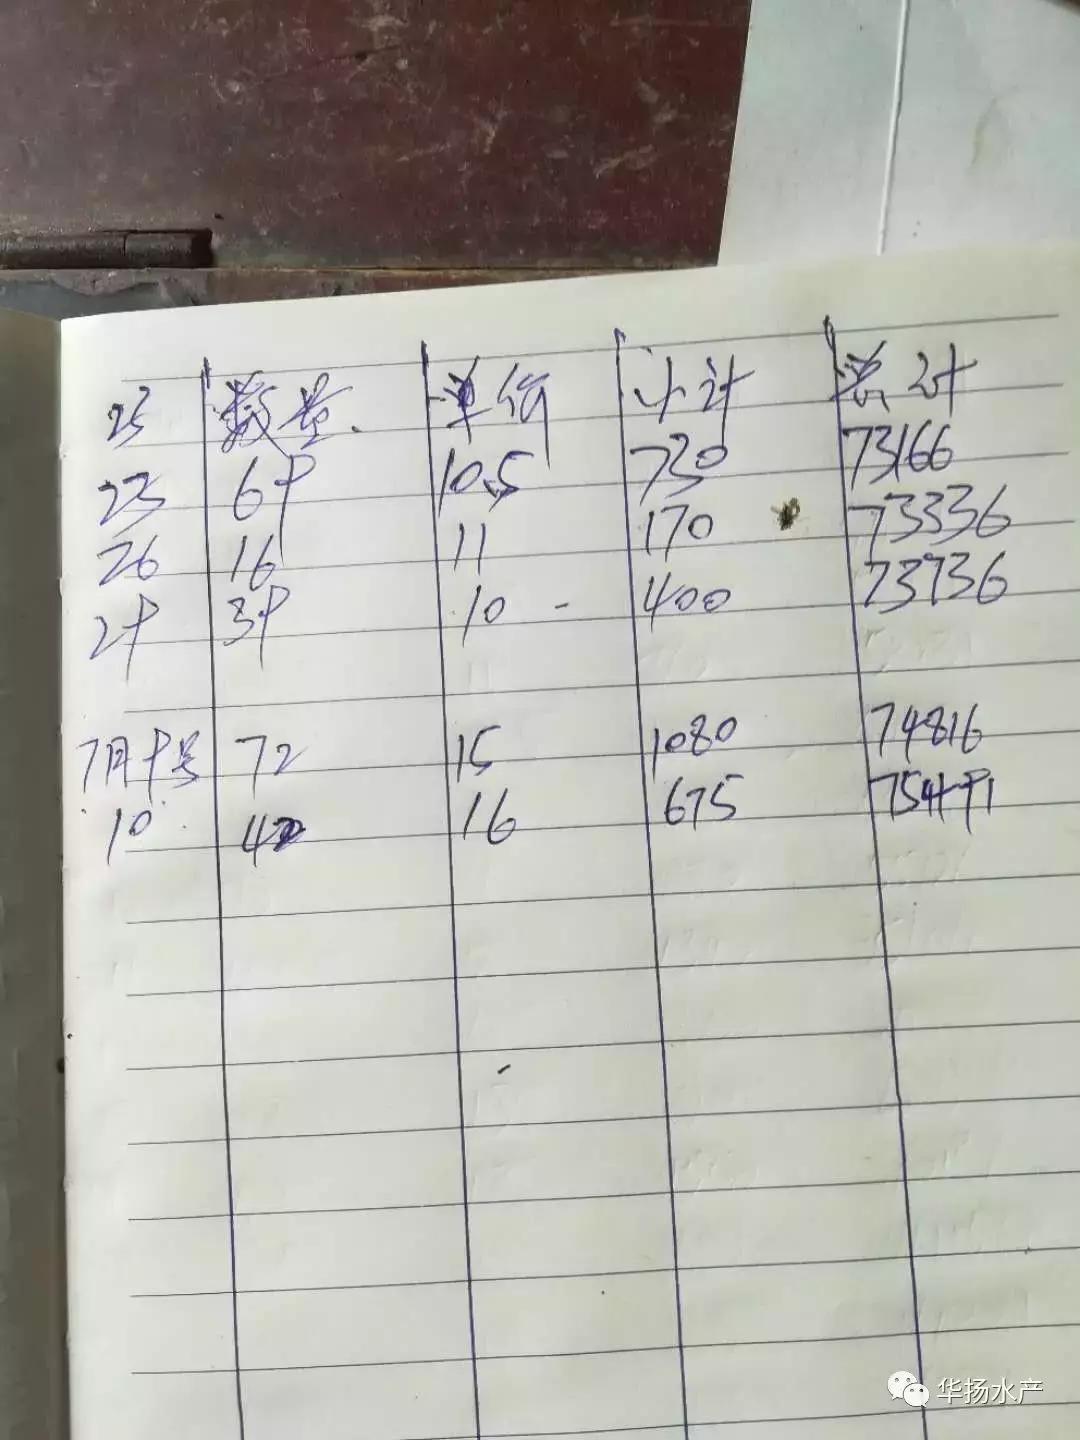 25 数量. 单价 小计 总计
23 69 10.5 730 73166
26 16 11 170 73336
29 39 10 - 400 73736
7月9号 72 15 1080 74816
10 42 16 675 75491
华扬水产